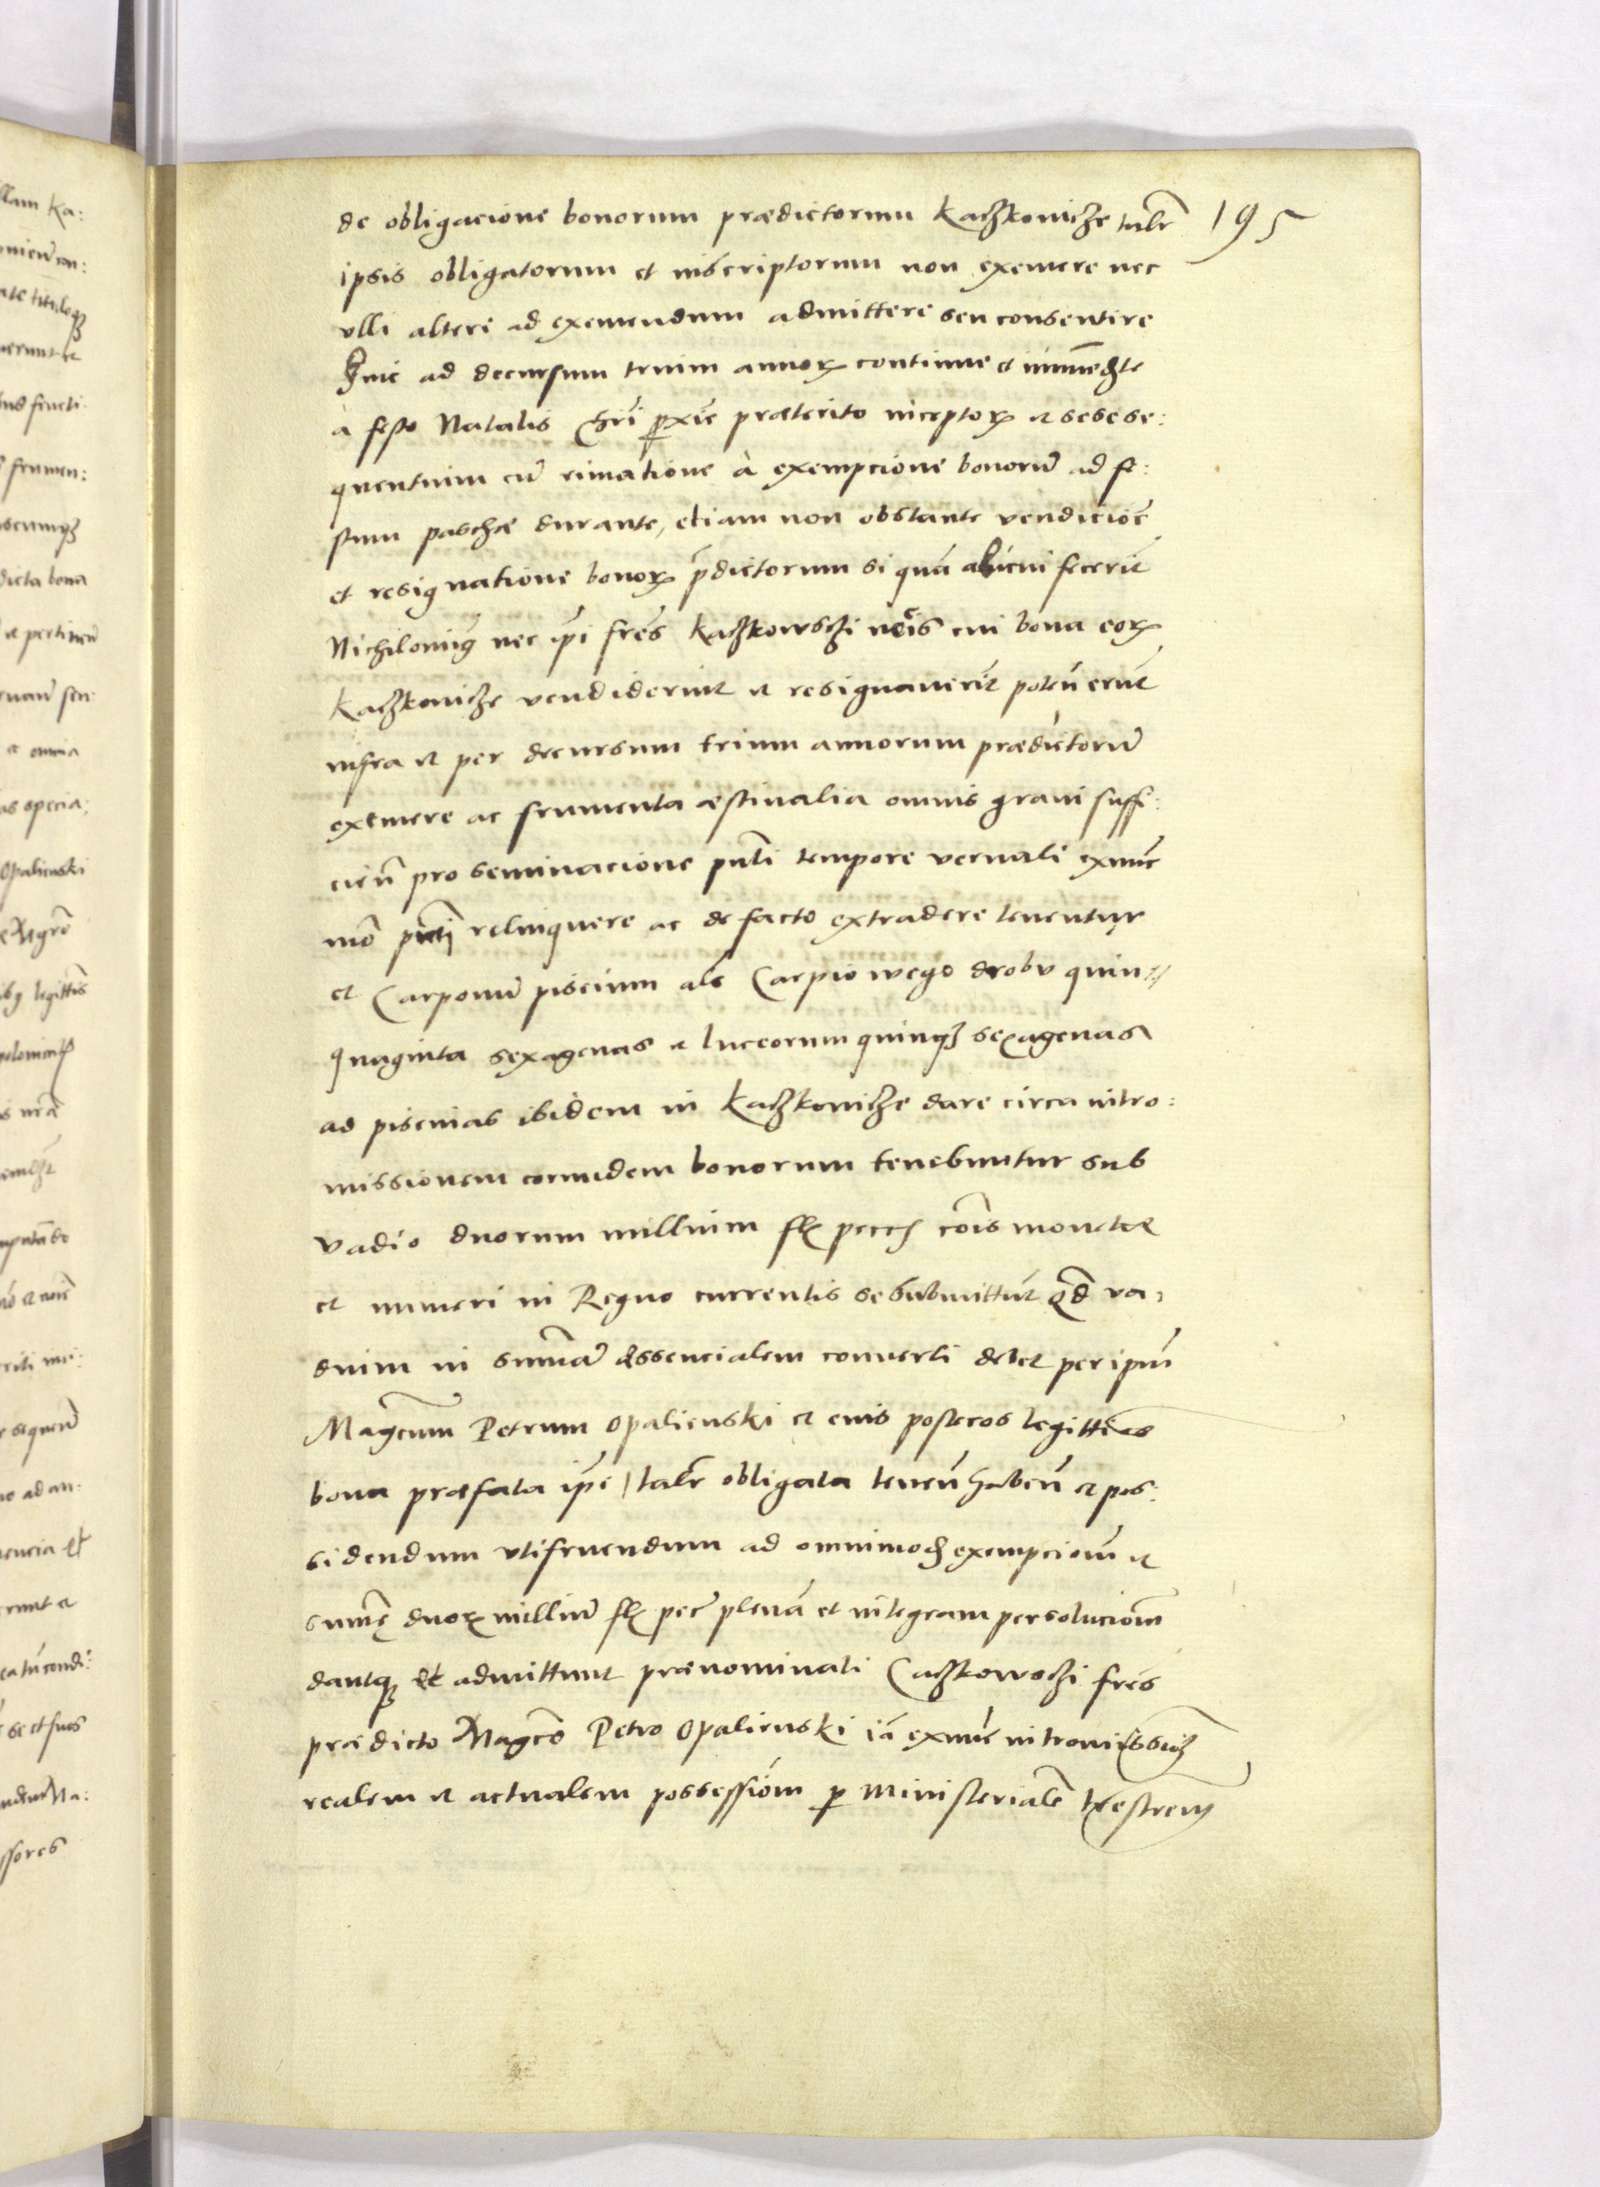 de obligacione bonorum prædictorum Kaczkowicze talr 195
ipsis obligatorum et inscriptorum non exemere nec
vlli alteri ad exemendum admittere seu consentire
huic ad decursum trium annor continue et immedte
à festo Natalis Chri prxie præterito inceptor et sese se:
quentium cu rimatione à exempcione bonoru ad fe:
stum paschæ durante, etiam non obstante vendicioe
et resignatione bonor pdictorum si qua alicui feceriut
Nichilomig nec ipi fres Kaczkowsczi ncis cui bona eor
Kaczkowicze vendiderint et resignauerit poten erut
infra et per decursum trium annorum prædictoru
exemere ac frumenta æstiualia omnis grani suffi:
cien pro seminacione pnti tempore vernali exnuc
mo pnti relinquere ac de facto extradere tenentur
et Carponu piscium als Carpiowego drobu quin
quaginta sexagenas et luceorum quinq sexagenas
ad piscinas ibidem in Kaczkowicze dare circa intro:
missionem eorundem bonorum tenebuntur sub
vadio duorum millium fl pecc cois monetæ
et numeri in Regno currentis se submittut qd va:
dium in summa essencialem conuerti debet per ipm
Magcum Petrum Opalienski et eius posteros legittimos
bona præfata ipi talr obligata tenen haben et pos:
sidendum vtifruendum ad omnimod exempciom et
sume duor milliu fl pec plena et integram persoluciom
dantq et admittunt prænominati Caczkowsczi fres
prædicto Magco Petro Opalienski ia exnuc intromissioe
realem et actualem possessiom p Ministeriale trestrem